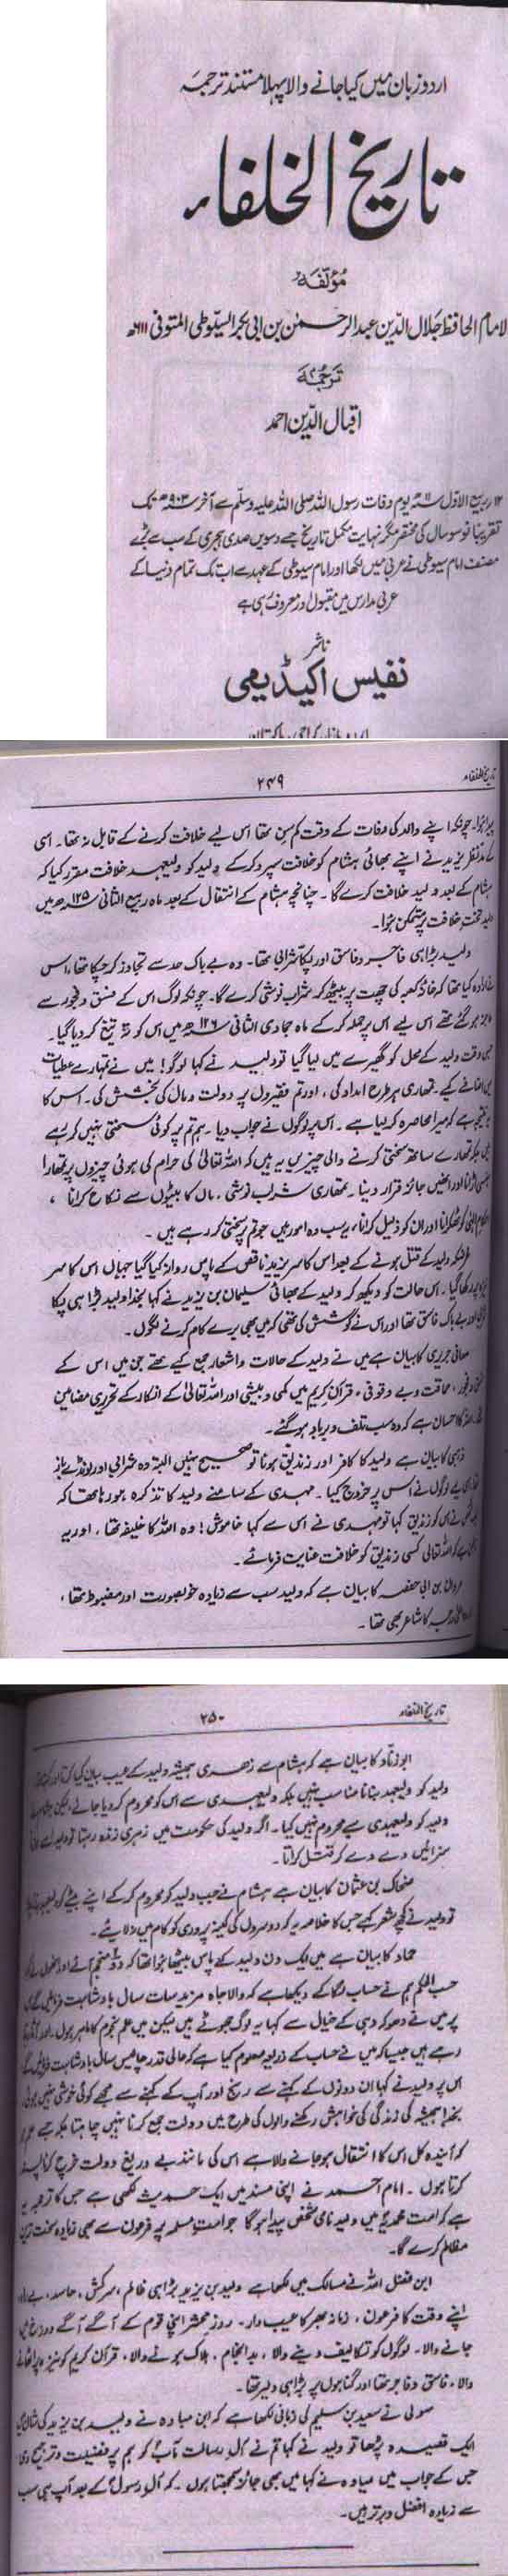 اردو زبان میں کیا جانے والا پہلا مستند ترجمہ
تاریخ الخلفاء
مؤلفہ
لامام الحافظ جلال الدین عبدالرحمٰن بن ابی بکر السیوطی المتوفی ۹۱۱ھ
ترجمہ
اقبال الدین احمد
۱۲ ربیع الاول ۱۱ھ یوم وفات رسول اللہ صلی اللہ علیہ وسلم سے آخر ۹۰۳ھ تک
تقریباً نو سو سال کی مختصر مگر نہایت مکمل تاریخ جسے دسویں صدی ہجری کے سب سے بڑے
مصنف امام سیوطی نے عربی میں لکھا اور امام سیوطی کے عہد سے اب تک تمام دنیا کے
عربی مدارس میں مقبول اور معروف رہی ہے
ناشر
نفیس اکیڈیمی
اردو بازار کراچی، پاکستان
تاریخ الخلفاء
۲۴۹
پیدا ہوا۔ چونکہ اپنے والد کی وفات کے وقت کم سن تھا اس لیے خلافت کرنے کے قابل نہ تھا۔ اسی
کے مدنظر یزید نے اپنے بھائی ہشام کو خلافت سپرد کرکے ولید کو ولیعہد خلافت مقرر کیا کہ
ہشام کے بعد ولید خلافت کرے گا۔ چنانچہ ہشام کے انتقال کے بعد ماہ ربیع الثانی ۱۲۵ھ میں
ولید تخت خلافت پر متمکن ہوا۔
ولید بڑا ہی فاجر و فاسق اور پکا شرابی تھا۔ وہ بے باک حد سے تجاوز کر چکا تھا، اس
نے ارادہ کیا تھا کہ خانہ کعبہ کی چھت پر بیٹھ کر شراب نوشی کرے گا۔ چونکہ لوگ اس کے فسق و فجور سے
عاجز ہو گئے تھے اس لیے اس پر حملہ کرکے ماہ جمادی الثانی ۱۲۶ھ میں اس کو تہ تیغ کر دیا گیا۔
جس وقت ولید کے محل کو گھیرے میں لیا گیا تو ولید نے کہا لوگو! میں نے تمہارے عطیات
میں اضافے کیے۔ تمھاری ہر طرح امداد کی، اور تم فقیروں پر دولت و مال کی بخشش کی۔ اس کا
یہ نتیجہ ہے کہ میرا محاصرہ کر لیا ہے۔ اس پر لوگوں نے جواب دیا۔ ہم تم پر کوئی سختی نہیں کر رہے
ہیں بلکہ تمھارے ساتھ سختی کرنے والی چیزیں یہ ہیں کہ اللہ تعالیٰ کی حرام کی ہوئی چیزوں پر تمھارا
ہنسی اڑانا اور انھیں جائز قرار دینا۔ تمھاری شراب نوشی، ماں کا بیٹوں سے نکاح کرانا،
احکام الٰہی کو ٹھکرانا اور ان کو ذلیل کرانا، یہ سب وہ امور ہیں جو تم پر سختی کر رہے ہیں۔
غرضکہ ولید کے قتل ہونے کے بعد اس کا سر یزید ناقص کے پاس روانہ کیا گیا جہاں اس کا سر
نیزہ پر رکھا گیا۔ اس حالت کو دیکھ کر ولید کے بھائی سلیمان بن یزید نے کہا بخدا ولید بڑا ہی پکا
شرابی اور بے باک فاسق تھا اور اس نے کوشش کی تھی کہ میں بھی برے کام کرنے لگوں۔
معافی جریری کا بیان ہے میں نے ولید کے حالات و اشعار جمع کیے تھے جن میں اس کے
فسق و فجور، حماقت و بے وقوفی، قرآن کریم میں کمی و بیشی اور اللہ تعالیٰ کے انکار کے تحریری مضامین
تھے۔ اللہ کا احسان ہے کہ وہ سب تلف و برباد ہو گئے۔
ذہبی کا بیان ہے ولید کا کافر اور زندیق ہونا تو صحیح نہیں البتہ وہ شرابی اور لونڈے باز
تھا اسی لیے لوگوں نے اس پر خروج کیا۔ مہدی کے سامنے ولید کا تذکرہ ہو رہا تھا کہ
ایک شخص نے اس کو زندیق کہا تو مہدی نے اس سے کہا خاموش! وہ اللہ کا خلیفہ تھا، اور یہ
ناممکن ہے کہ اللہ تعالیٰ کسی زندیق کو خلافت عنایت فرمائے۔
مروان بن ابی حفصہ کا بیان ہے کہ ولید سب سے زیادہ خوبصورت اور مضبوط تھا،
کا شاعر بھی تھا۔
تاریخ الخلفاء
۲۵۰
ابو زناد کا بیان ہے کہ ہشام سے زہری ہمیشہ ولید کے عیب بیان کیا کرتا اور کہتا
ولید کو ولیعہد بنانا مناسب نہیں بلکہ ولیعہدی سے اس کو محروم کر دیا جائے لیکن ہشام نے
ولید کو ولیعہدی سے محروم نہیں کیا۔ اگر ولید کی حکومت میں زہری زندہ رہتا تو ولید اسے
سزائیں دے دے کر قتل کراتا۔
ضحاک بن عثمان کا بیان ہے ہشام نے جب ولید کو محروم کرکے اپنے بیٹے کو ولیعہد
تو ولید نے کچھ شعر کہے جس کا خلاصہ یہ کہ دوسروں کی کینہ پروری کو کام میں نہ لائے۔
حماد کا بیان ہے میں ایک دن ولید کے پاس بیٹھا ہوا تھا کہ دو منجم آئے اور انھوں نے کہا
حسب الحکم ہم نے حساب لگا کے دیکھا ہے کہ والا جاہ مزید سات سال بادشاہت فرمائیں گے
پر میں نے دھوکہ دہی کے خیال سے کہا یہ لوگ جھوٹے ہیں لیکن میں علم نجوم کا ماہر ہوں۔
رہے ہیں جیسا کہ میں نے حساب کے ذریعہ معلوم کیا ہے کہ عالی قدر چالیس سال بادشاہت فرمائیں گے
اس پر ولید نے کہا ان دونوں کے کہنے سے رنج اور آپ کے کہنے سے مجھے کوئی خوشی نہیں ہوئی
بخدا ہمیشہ کی زندگی کی خواہش رکھنے والوں کی طرح میں دولت جمع کرنا نہیں چاہتا بلکہ جسے علم ہو
کہ آئندہ کل اس کا انتقال ہو جانے والا ہے اس کی مانند بے دریغ دولت خرچ کرنا پسند
کرتا ہوں۔ امام احمد نے اپنی مسند میں ایک حدیث لکھی ہے جس کا ترجمہ یہ
ہے کہ امت محمدیہ میں ولید نامی شخص پیدا ہوگا جو امت مسلمہ پر فرعون سے بھی زیادہ سخت ترین
مظالم کرے گا۔
ابن فضل اللہ نے مسالک میں لکھا ہے ولید بن یزید بڑا ہی ظالم، سرکش، حاسد، بے راہ،
اپنے وقت کا فرعون، زمانہ بھر کا عیب دار۔ روز محشر اپنی قوم کے آگے آگے دوزخ میں
جانے والا۔ لوگوں کو تکالیف دینے والا، بدانجام، ہلاک ہونے والا، قرآن کریم کو نیزہ پر اٹھانے
والا، فاسق و فاجر تھا اور گناہوں پر بڑا ہی دلیر تھا۔
صولی نے سعید بن سلیم کی زبانی لکھا ہے کہ ابن میادہ نے ولید بن یزید کی شان میں
ایک قصیدہ پڑھا تو ولید نے کہا تم نے آل رسالت مآب کو ہم پر فضیلت و ترجیح دی
جس کے جواب میں میادہ نے کہا میں بھی جائز سمجھتا ہوں۔ کہ آل رسول کے بعد آپ ہی سب
سے زیادہ افضل و برتر ہیں۔